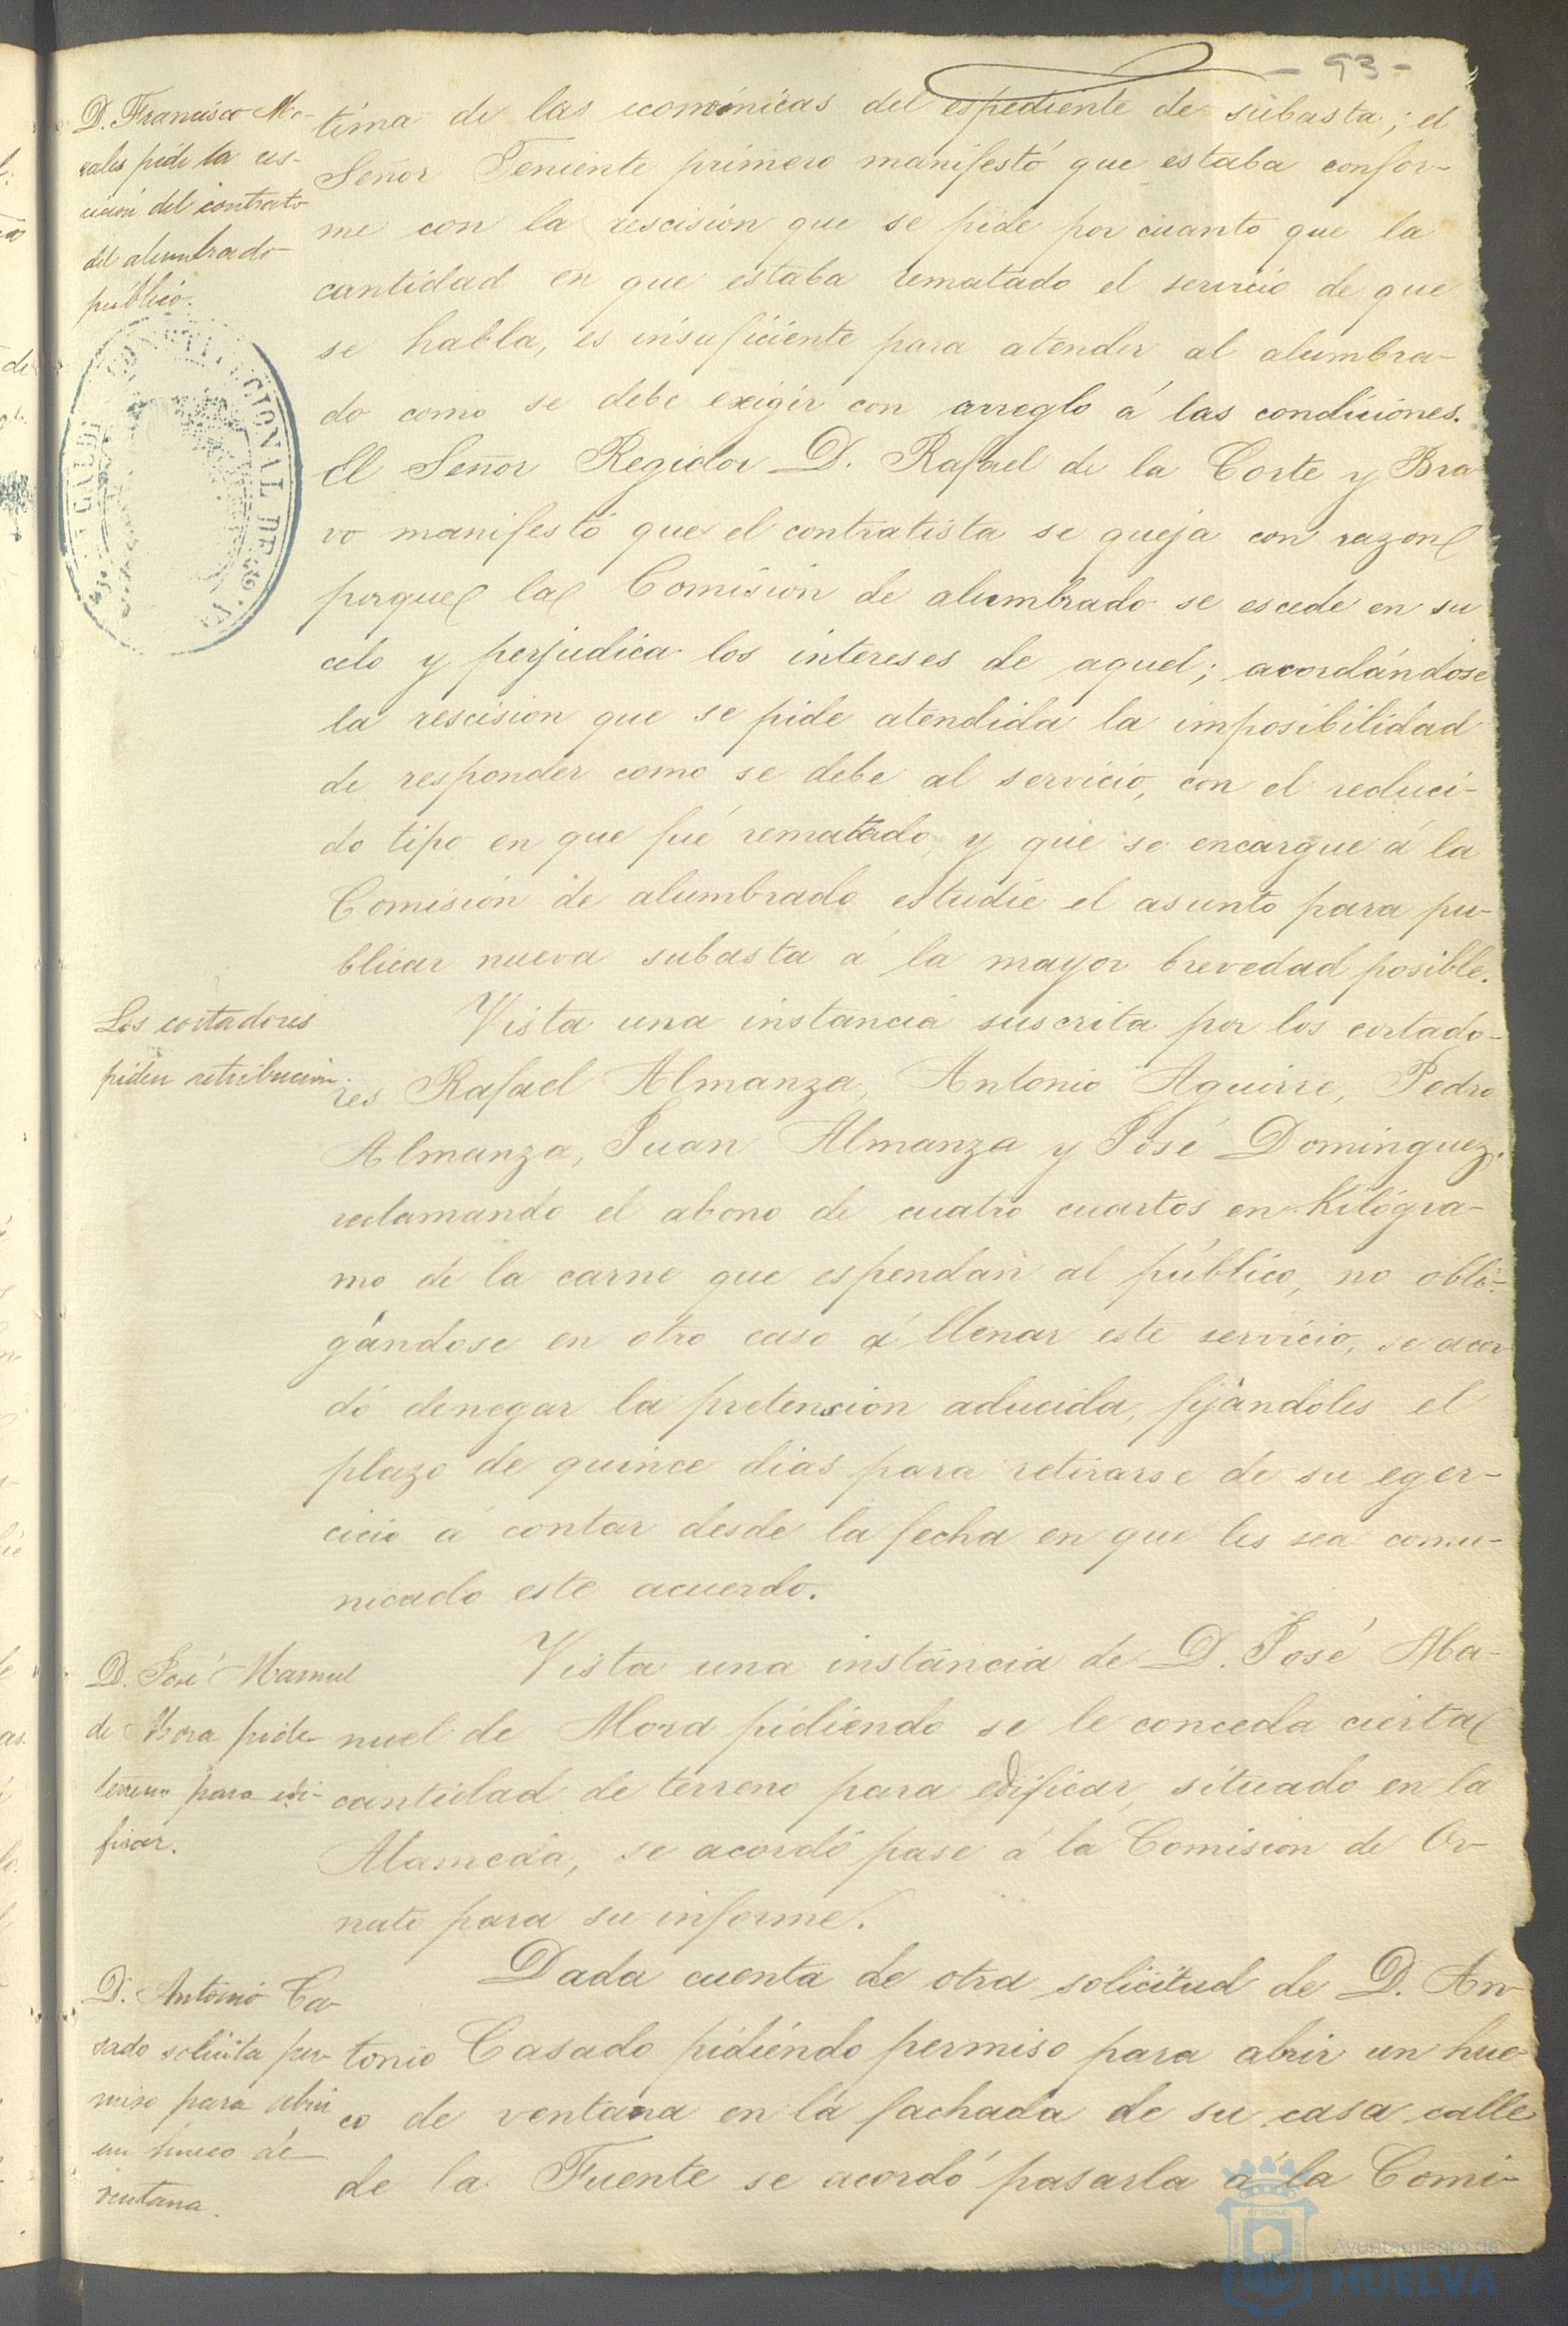 - 93 -
D. Francisco Mo-
rales pide la res-
cición del contrato
del alumbrado
público.
tima de las económicas del espediente de subasta; el
Señor Teniente primero manifestó que estaba confor-
me con la rescisión que se pide por cuanto que la
cantidad en que estaba rematado el servicio de que
se habla, es insuficiente para atender al alumbra-
do como se debe exigir con arreglo á las condiciones.
El Señor Regidor D. Rafael de la Corte y Bra-
vo manifestó que el contratista se queja con razon
porque la Comisión de alumbrado se escede en su
celo y perjudica los intereses de aquel; acordándose
la rescision que se pide atendida la imposibilidad
de responder como se debe al servicio, con el reduci-
do tipo en que fué rematado, y que se encargue á la
Comisión de alumbrado estudie el asunto para pu-
blicar nueva subasta á la mayor brevedad posible.
Los cortadores
piden retribucion.
Vista una instancia suscrita por los cortado-
res Rafael Almanza, Antonio Aguirre, Pedro
Almanza, Juan Almanza y José Dominguez
reclamando el abono de cuatro cuartos en Kilógra-
mo de la carne que espendan al público, no obli-
gándose en otro caso á llenar este servicio, se acor
dó denegar la pretension aducida, fijándoles el
plazo de quince dias para retirarse de su eger-
cicio á contar desde la fecha en que les sea comu-
nicado este acuerdo.
D. José Manuel
de Mora pide
terreno para edi-
ficar.
Vista una instancia de D. José Ma-
nuel de Mora pidiendo se le conceda cierta
cantidad de terreno para edificar, situado en la
Alameda, se acordó pase á la Comision de Or-
nato para su informe.
D. Antonio Ca-
sado solicita per-
miso para abrir
un hueco de
ventana.
Dada cuenta de otra solicitud de D. An-
tonio Casado pidiendo permiso para abrir un hue-
co de ventana en la fachada de su casa calle
de la Fuente se acordó pasarla á la Comi-
Ayuntamiento de
HUELVA